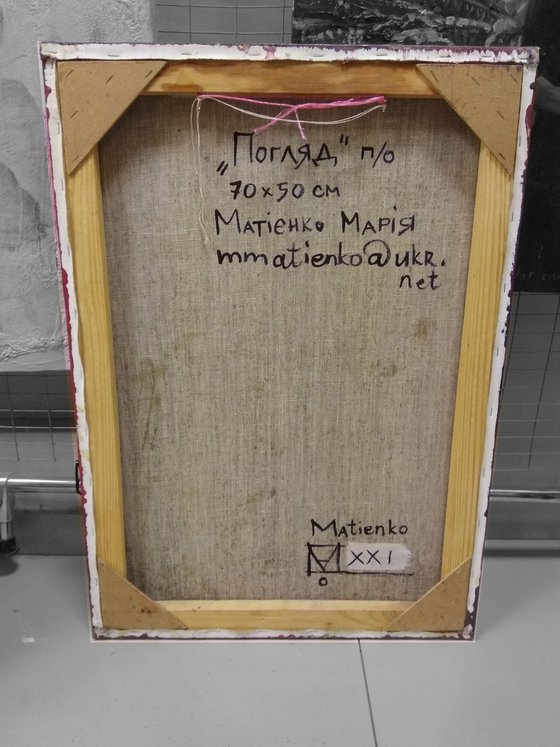 „Погляд" п/о
70х50 см
Матієнко Марія
mmatienko@ukr.
net
Matienko
XXI